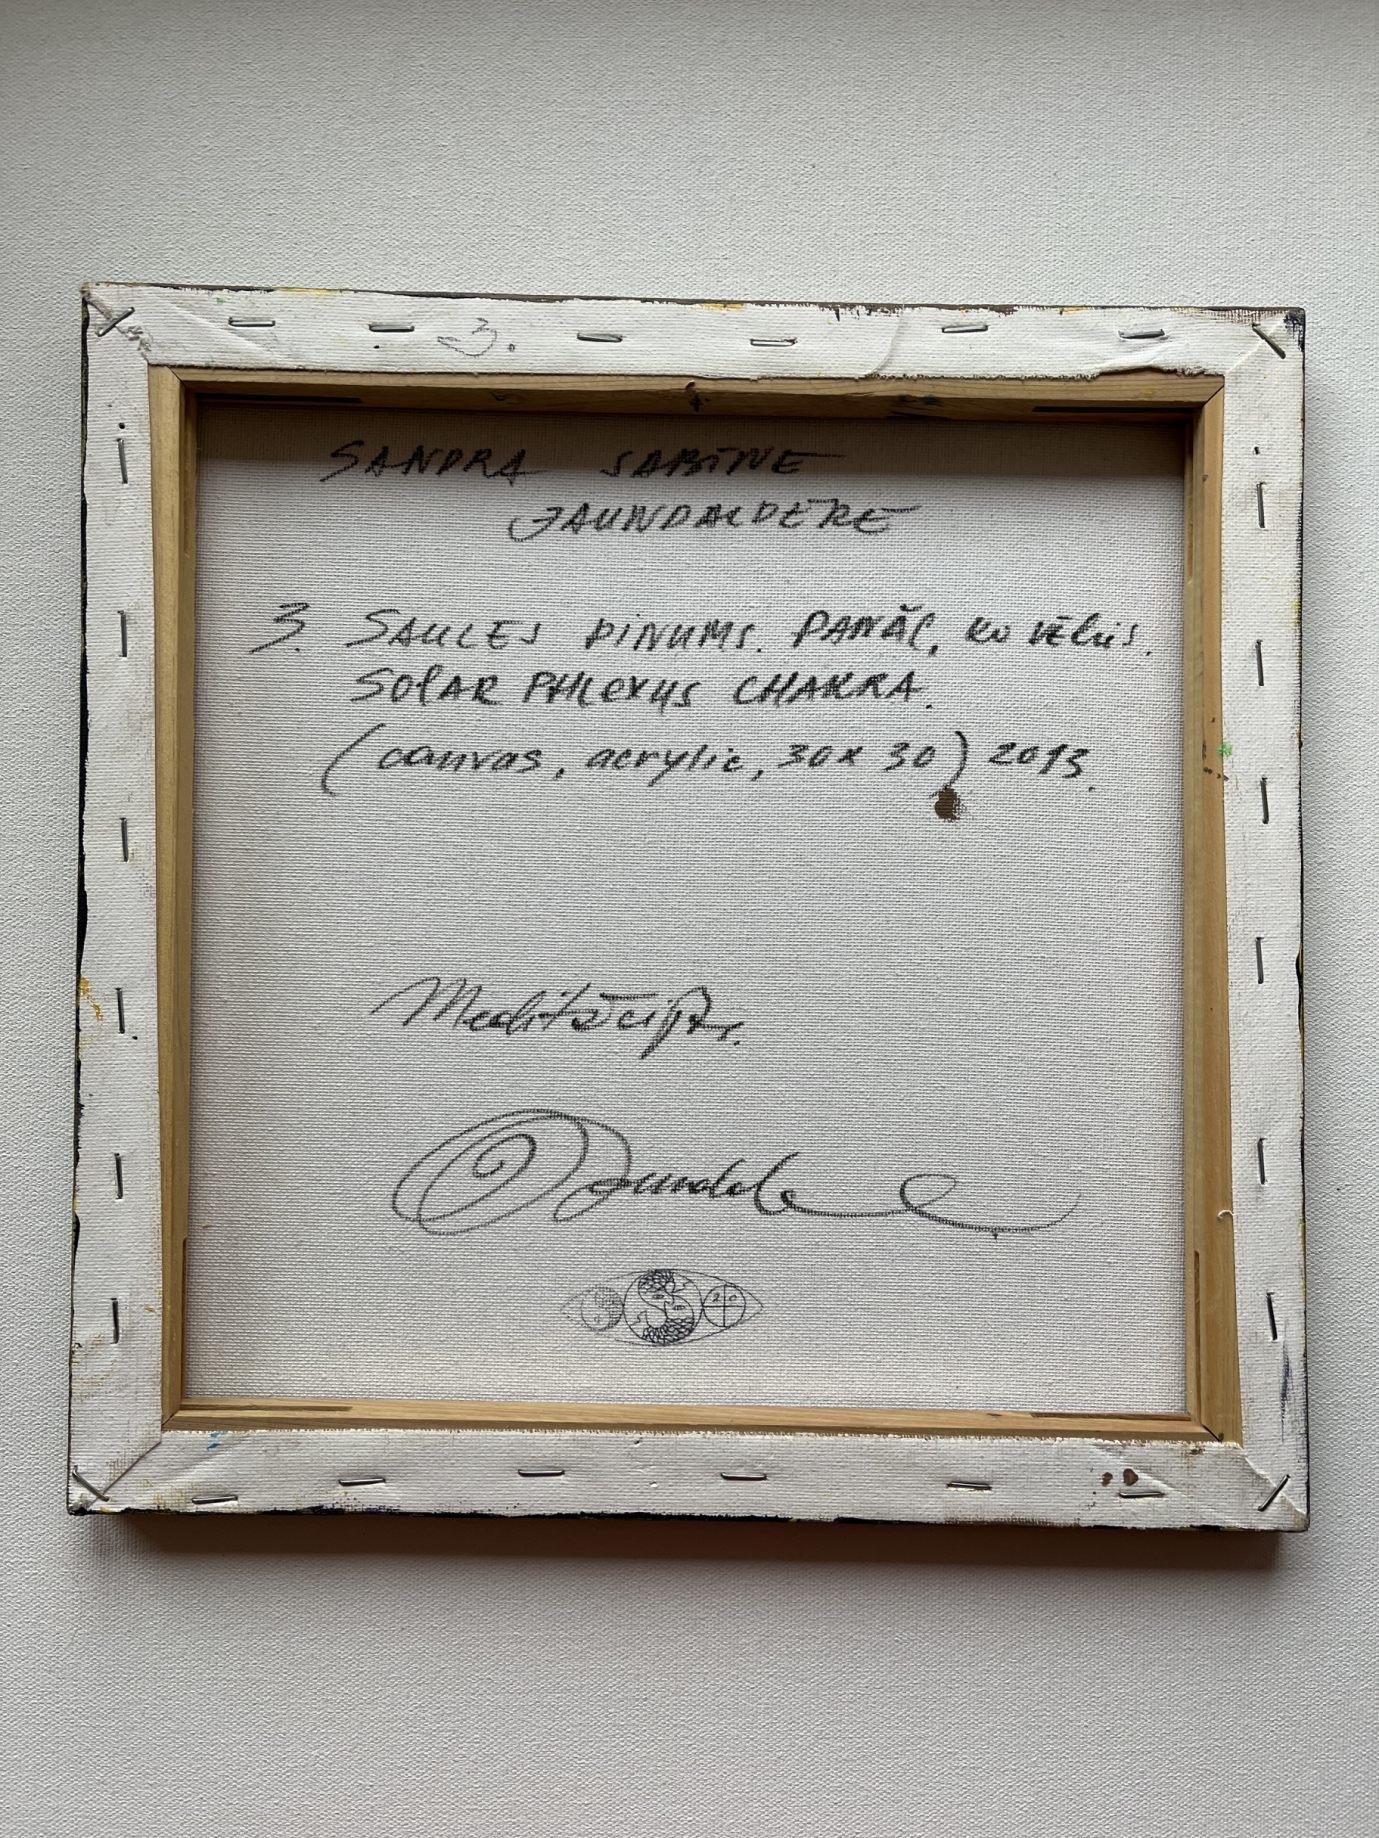 3.
SANDRA SABĪNE
JAUNDALDERE
3. SAULES PINUMS. PANĀC, KO VĒLIES.
SOLAR PHLEXUS CHAKRA.
(canvas, acrylic, 30x30) 2013.
Meditācija.